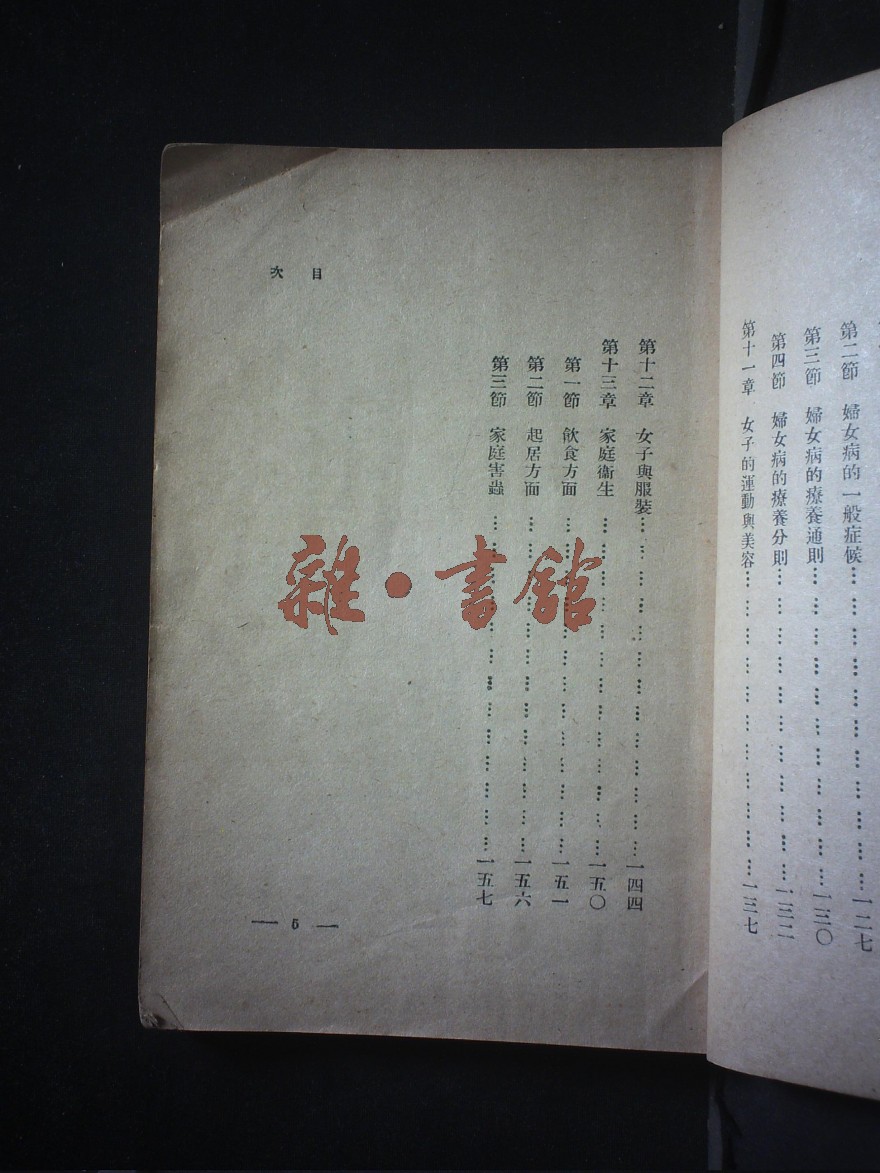 第二節　婦女病的一般症候………………………一二七
第三節　婦女病的療養通則………………………一三〇
第四節　婦女病的療養分則………………………一三二
第十一章　女子的運動與美容………………………一三七
目次
第十二章　女子與服裝………………………一四四
第十三章　家庭衞生………………………一五〇
第一節　飲食方面………………………一五一
第二節　起居方面………………………一五六
第三節　家庭害蟲………………………一五七
— 5 —
雜·書館